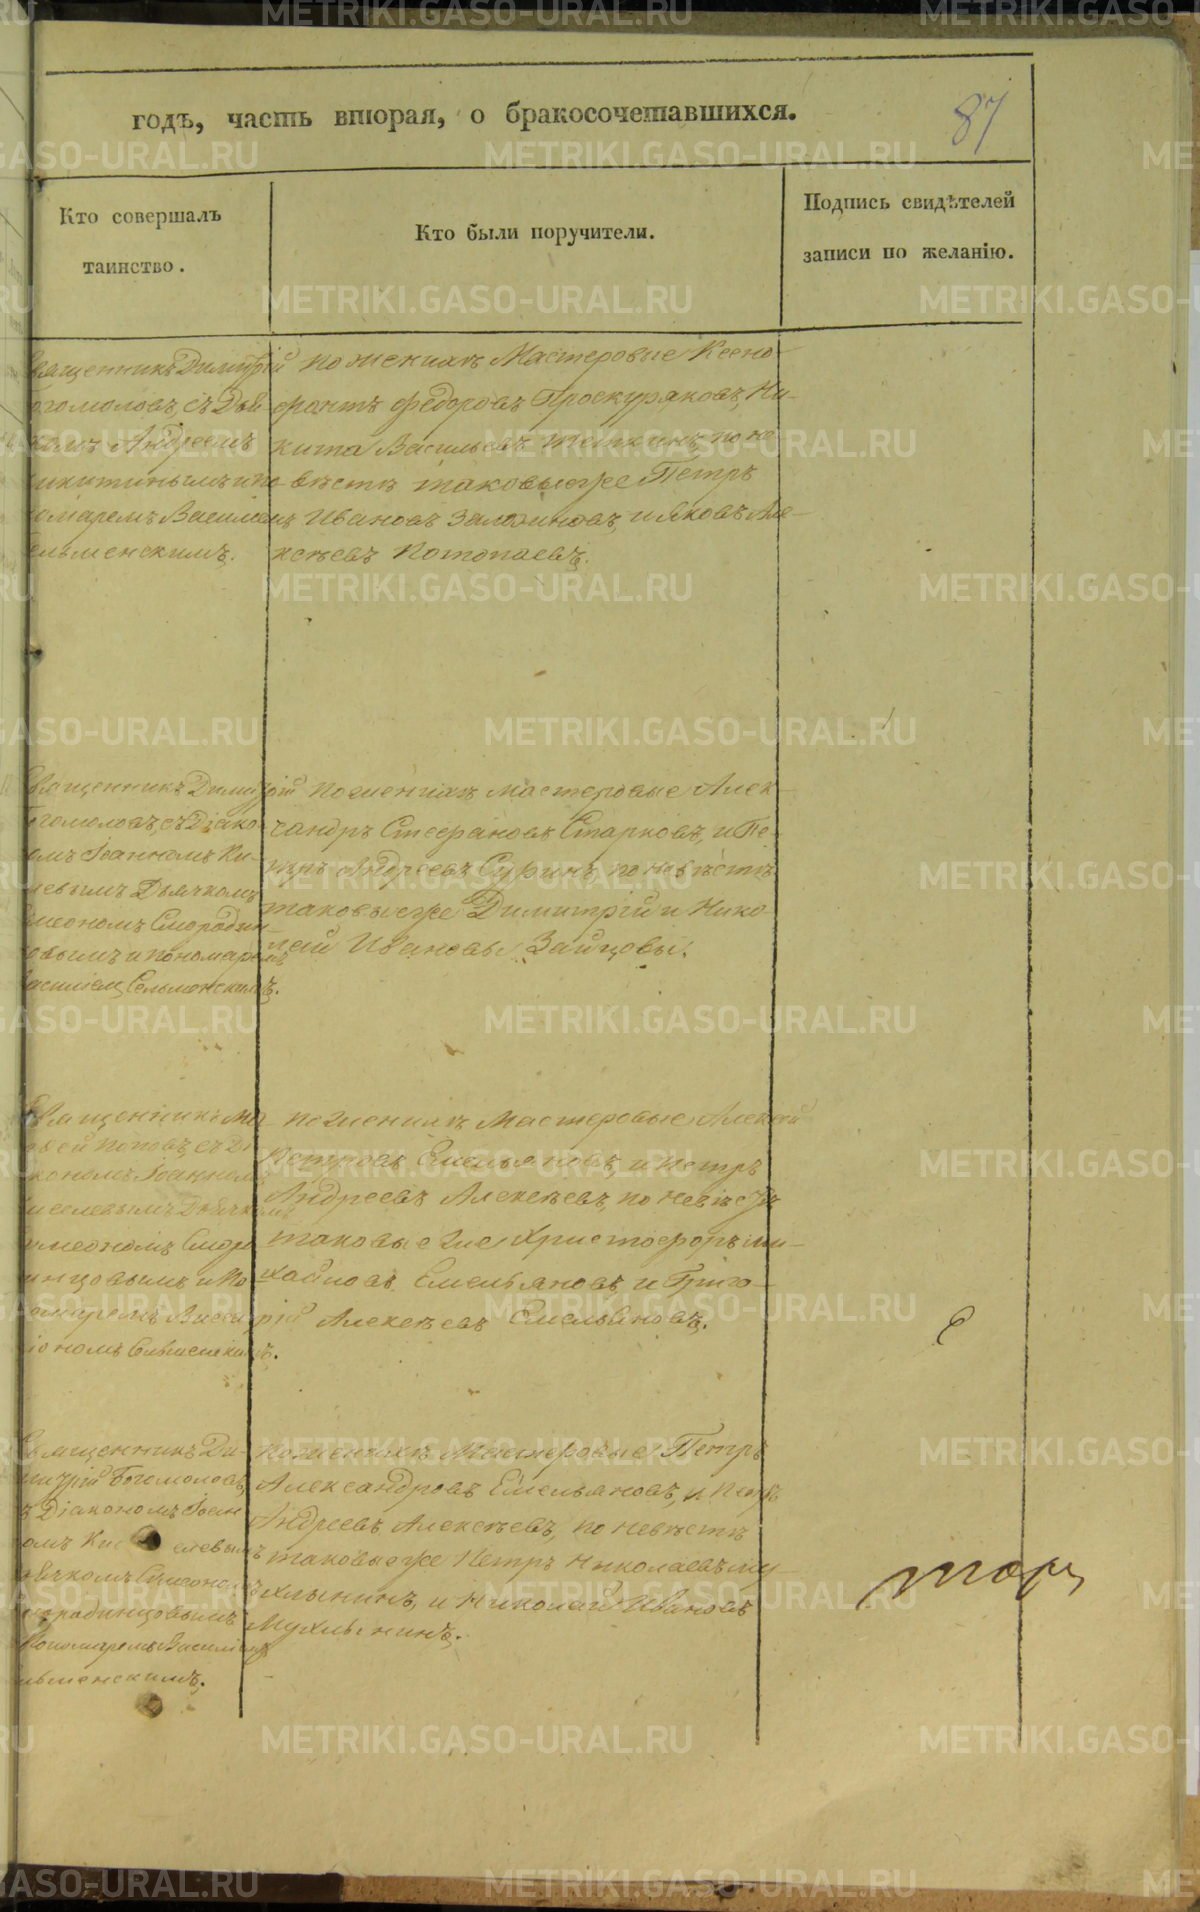 годъ, часть вторая, о бракосочетавшихся.
87
Кто совершалъ
таинство.
Кто были поручители.
Подпись свидѣтелей
записи по желанію.
вященникъ Димитрій
огомоловъ, съ Дья
Андреемъ
икитинымъ и по
омаремъ Василіемъ
ельменскимъ.
по женихѣ Мастеровые Ксено-
фонтъ Федоровъ Проскуряковъ, Ни-
кита Васильевъ по не
вѣстѣ таковые же Петръ
Ивановъ и Яковъ Але-
ксѣевъ Потопаевъ.
Священникъ Димитрій
огомоловъ, съ Діако-
омъ Іоанномъ Ки-
левымъ Дьячкомъ
имеономъ Смородин-
овымъ и пономаремъ
асиліемъ Сельменскимъ.
по женихѣ мастеровые Алек-
сандръ Стефановъ Старковъ, и Пе-
тръ Андреевъ Суринъ, по невѣстѣ
таковые же Димитрій и Нико-
лай Ивановы Зайцовы.
Священникъ Ма
ѳей Поповъ, съ Ді
кономъ Іоанномъ
иселевымъ Дьячкомъ
имеономъ Сморо
инцовымъ и По
омаремъ
Сельменскимъ.
по женихѣ Мастеровые Алексѣй
Петровъ Емельяновъ, и Петръ
Андреевъ Алексѣевъ, по невѣстѣ
таковые же Христофоръ Ми-
хайловъ Емельяновъ, и Григо-
рій Алексѣевъ Емельяновъ.
Священникъ Ди-
митрій Богомоловъ,
ъ Діакономъ Іоан
омъ Киселевымъ
ьячкомъ Симеономъ
мородинцовымъ
Пономаремъ Василіемъ
ельменскимъ.
по женихѣ Мастеровые Петръ
Александровъ Емельяновъ, и Петръ
Андреевъ Алексѣевъ, по невѣстѣ
таковые же Петръ Николаевъ Му-
хлынинъ, и Николай Ивановъ
Мухлынинъ.
METRIKI.GASO-URAL.RU